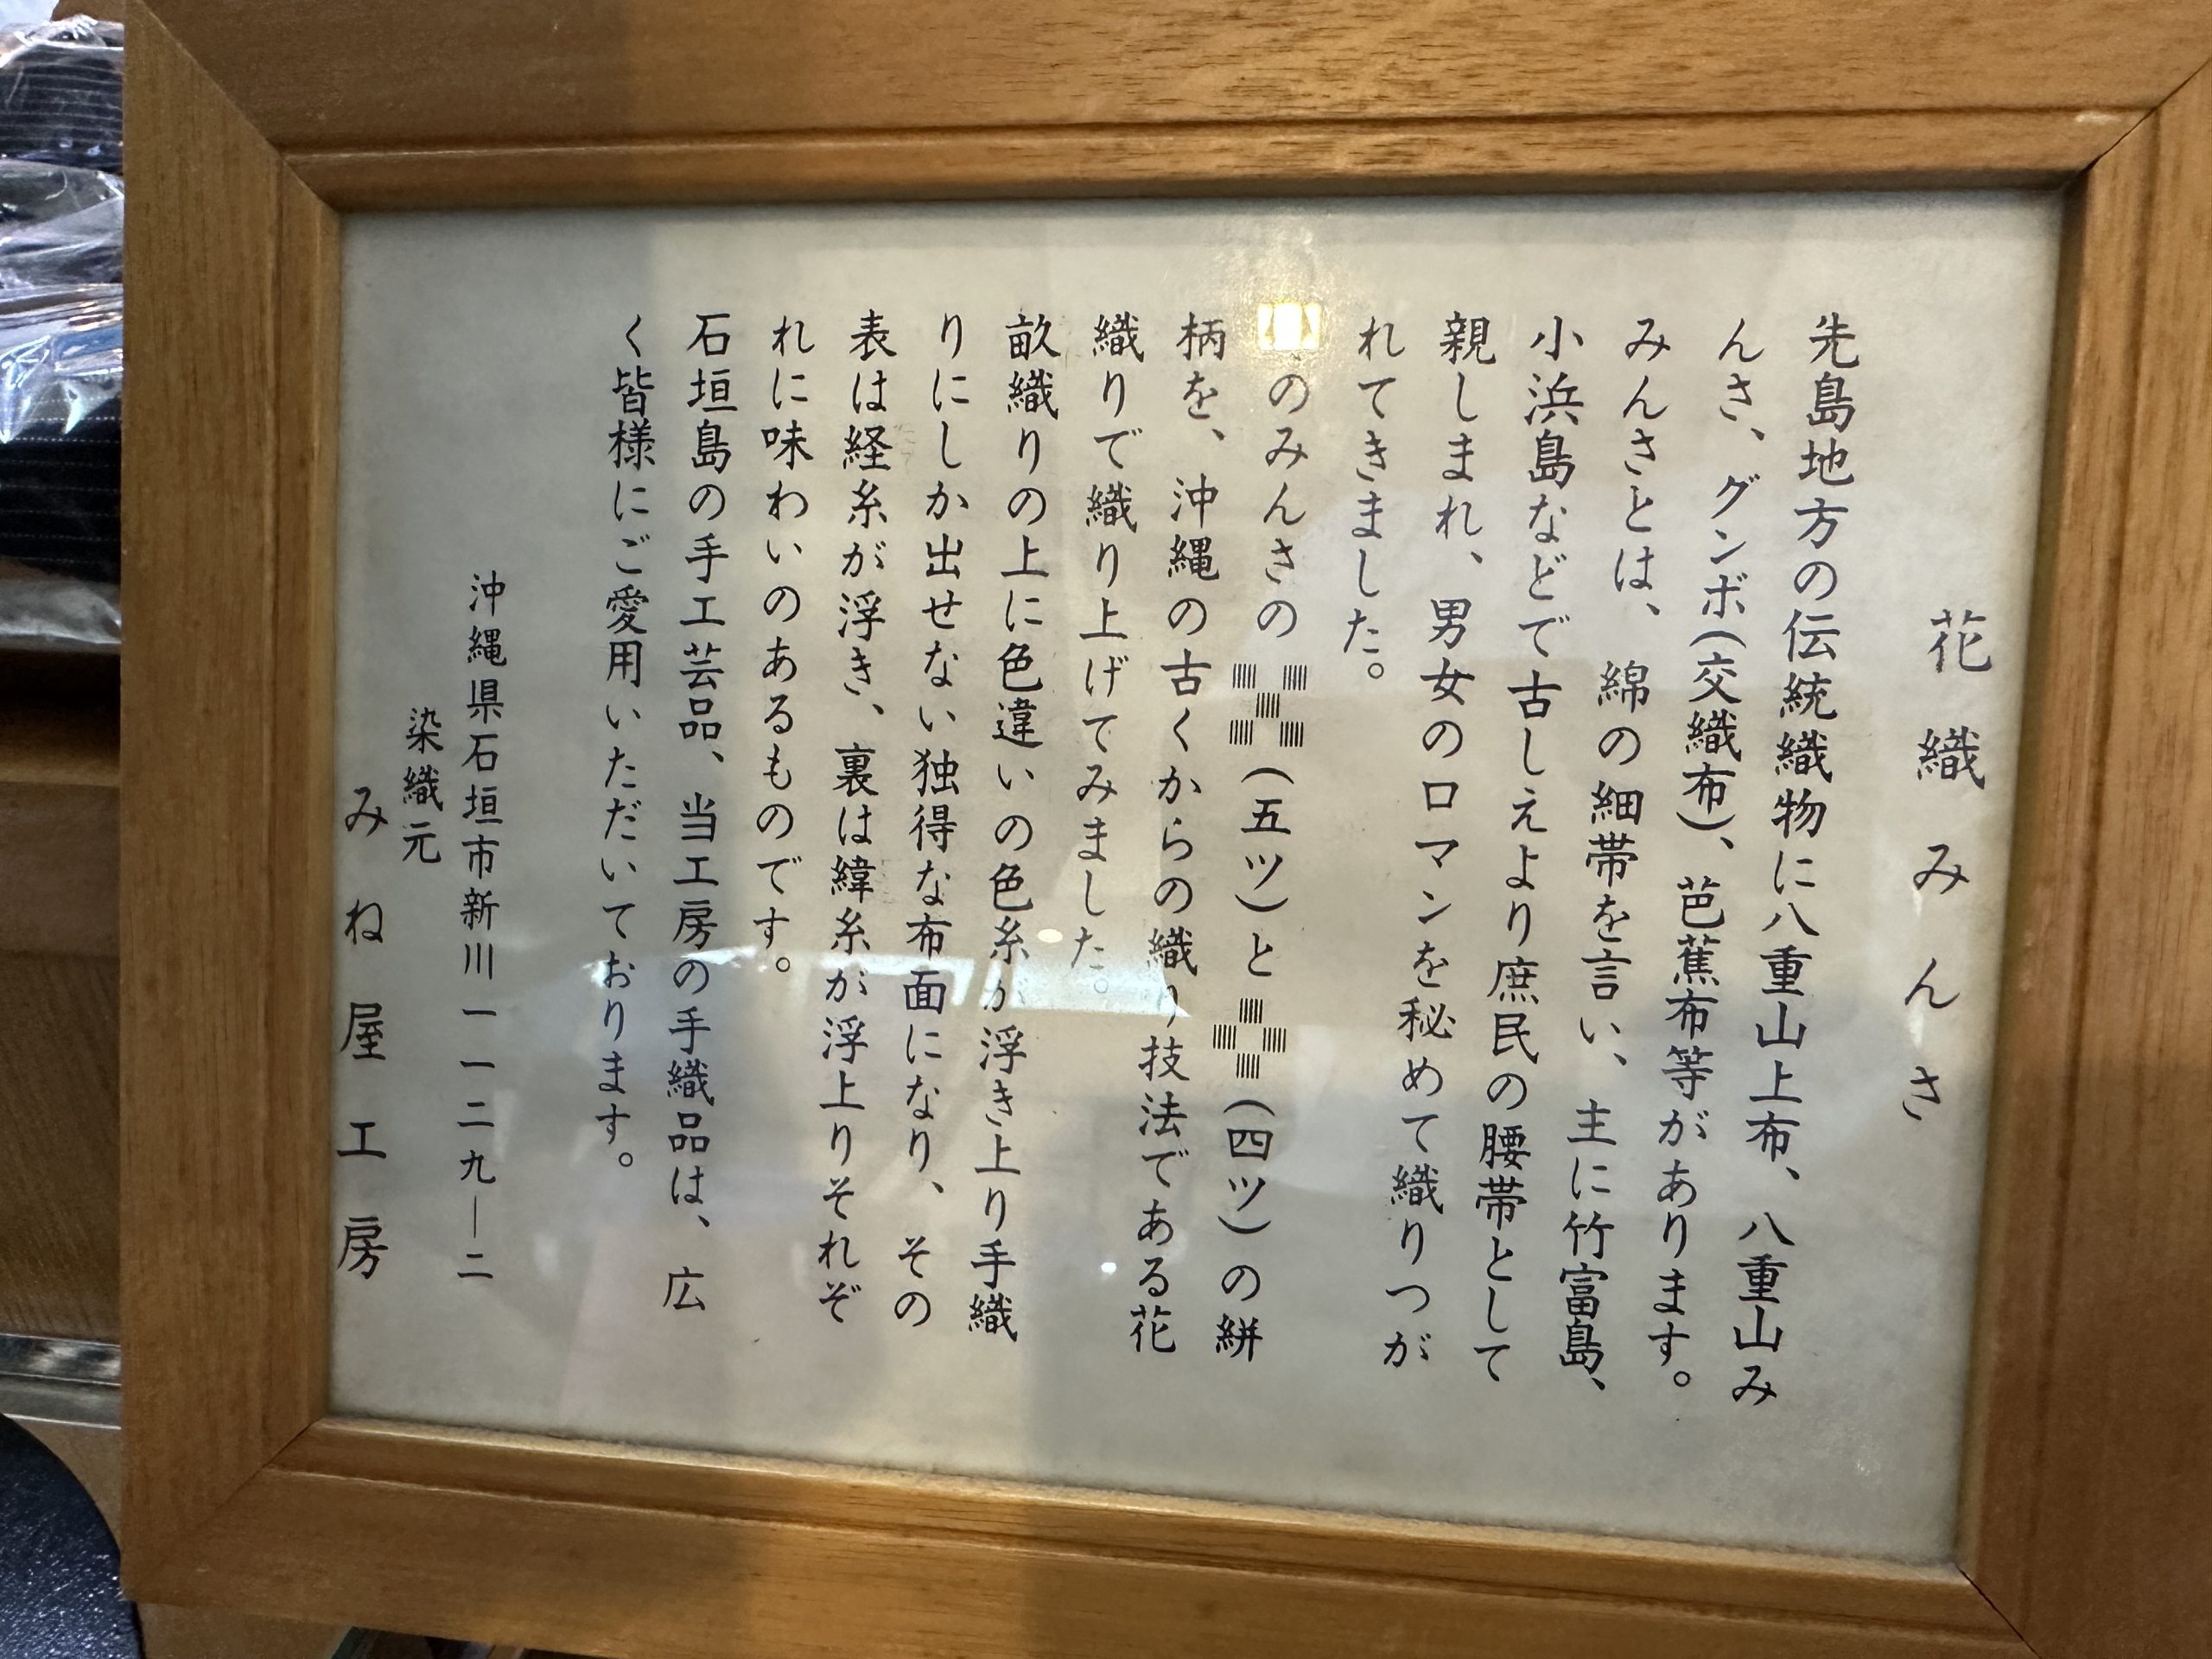 花織みんさ
先島地方の伝統織物に八重山上布、八重山み
んさ、グンボ(交織布)、芭蕉布等があります。
みんさとは、綿の細帯を言い、主に竹富島、
小浜島などで古しえより庶民の腰帯として
親しまれ、男女のロマンを秘めて織りつが
れてきました。
のみんさの(五ツ)と(四ツ)の絣
柄を、沖縄の古くからの織り技法である花
織りで織り上げてみました。
畝織りの上に色違いの色糸が浮き上り手織
りにしか出せない独得な布面になり、その
表は経糸が浮き、裏は緯糸が浮上りそれぞ
れに味わいのあるものです。
石垣島の手工芸品、当工房の手織品は、広
く皆様にご愛用いただいております。
沖縄県石垣市新川一一二九―二
染織元
みね屋工房